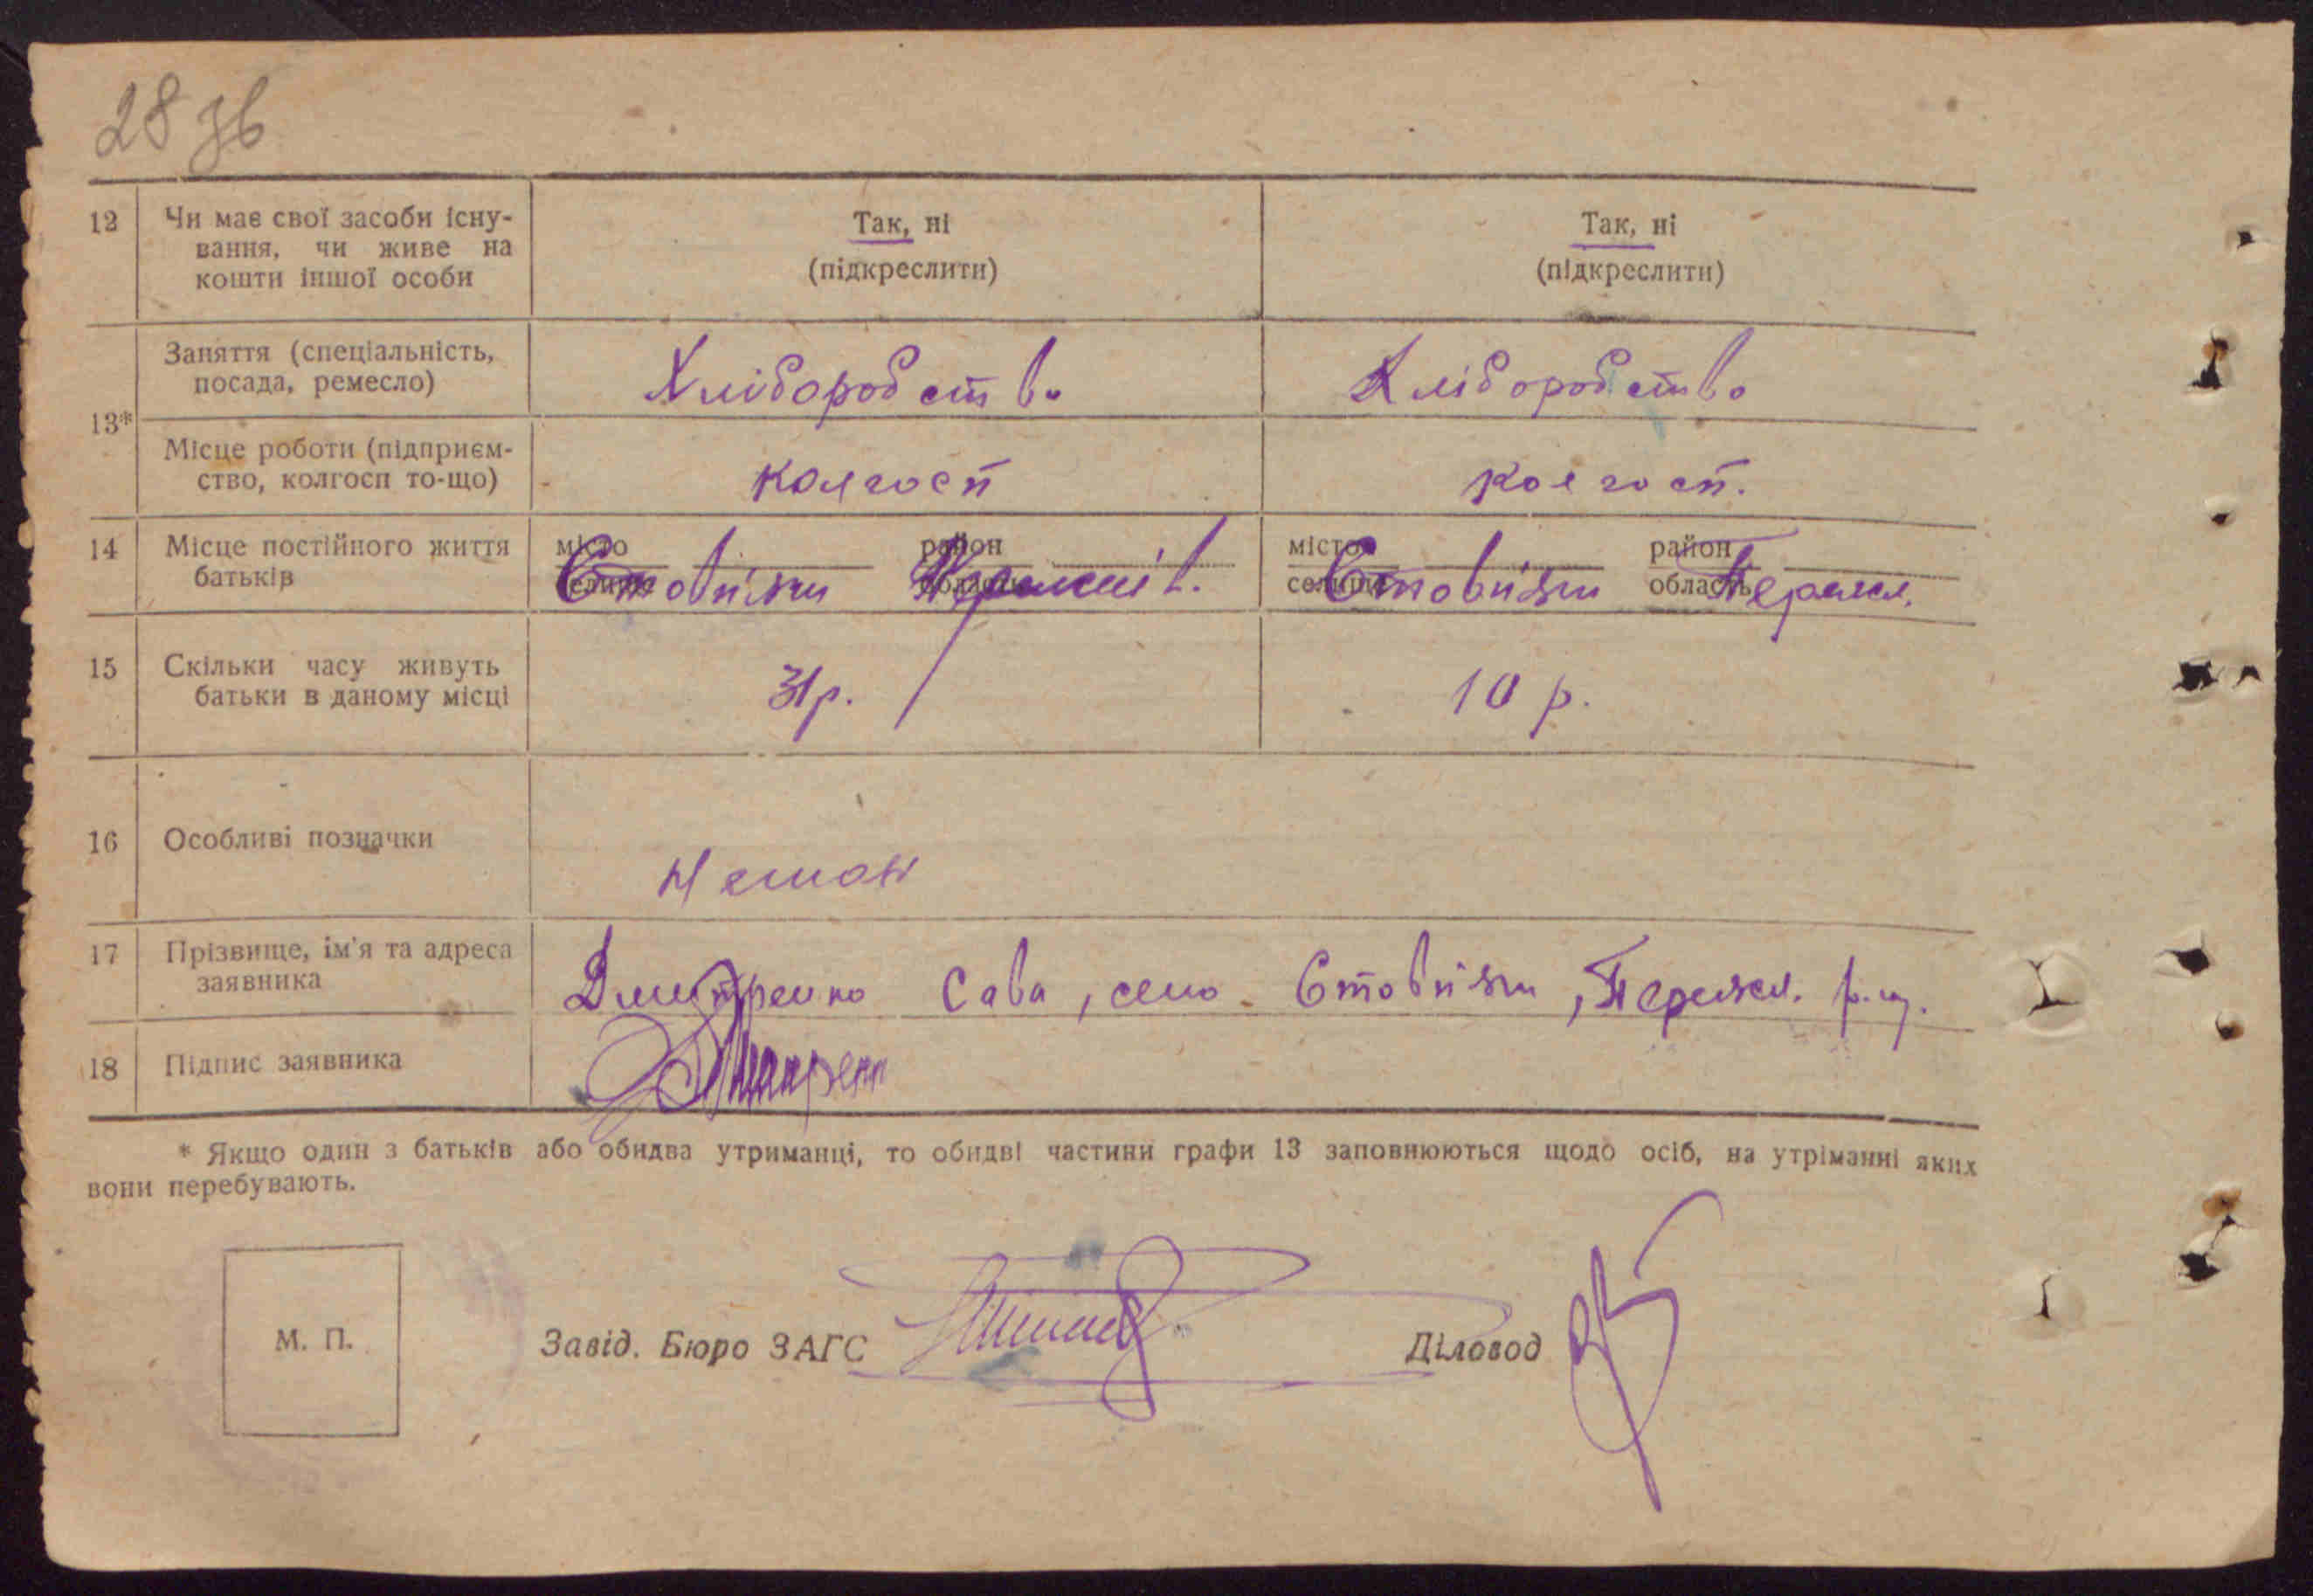 28 зв
12 Чи має свої засоби існу- Так, ні Так, ні
вання, чи живе на (підкреслити) (підкреслити)
кошти іншої особи
Заняття (спеціальність, Хліборобство Хліборобство
посада, ремесло)
13*
Місце роботи (підприєм- колгосп колгосп.
ство, колгосп то-що)
14 Місце постійного життя місто район місто район
батьків селище Стовп'яги область селище Стовп'яги область Переясл.
15 Скільки часу живуть 31 р. 10 р.
батьки в даному місці
16 Особливі позначки
Немає
17 Прізвище, ім'я та адреса Дмитренко Сава, село Стовп'яги, Переясл. р-ну.
заявника
18 Підпис заявника
* Якщо один з батьків або обидва утриманці, то обидві частини графи 13 заповнюються щодо осіб, на утріманні яких
вони перебувають.
М. П. Завід. Бюро ЗАГС Діловод